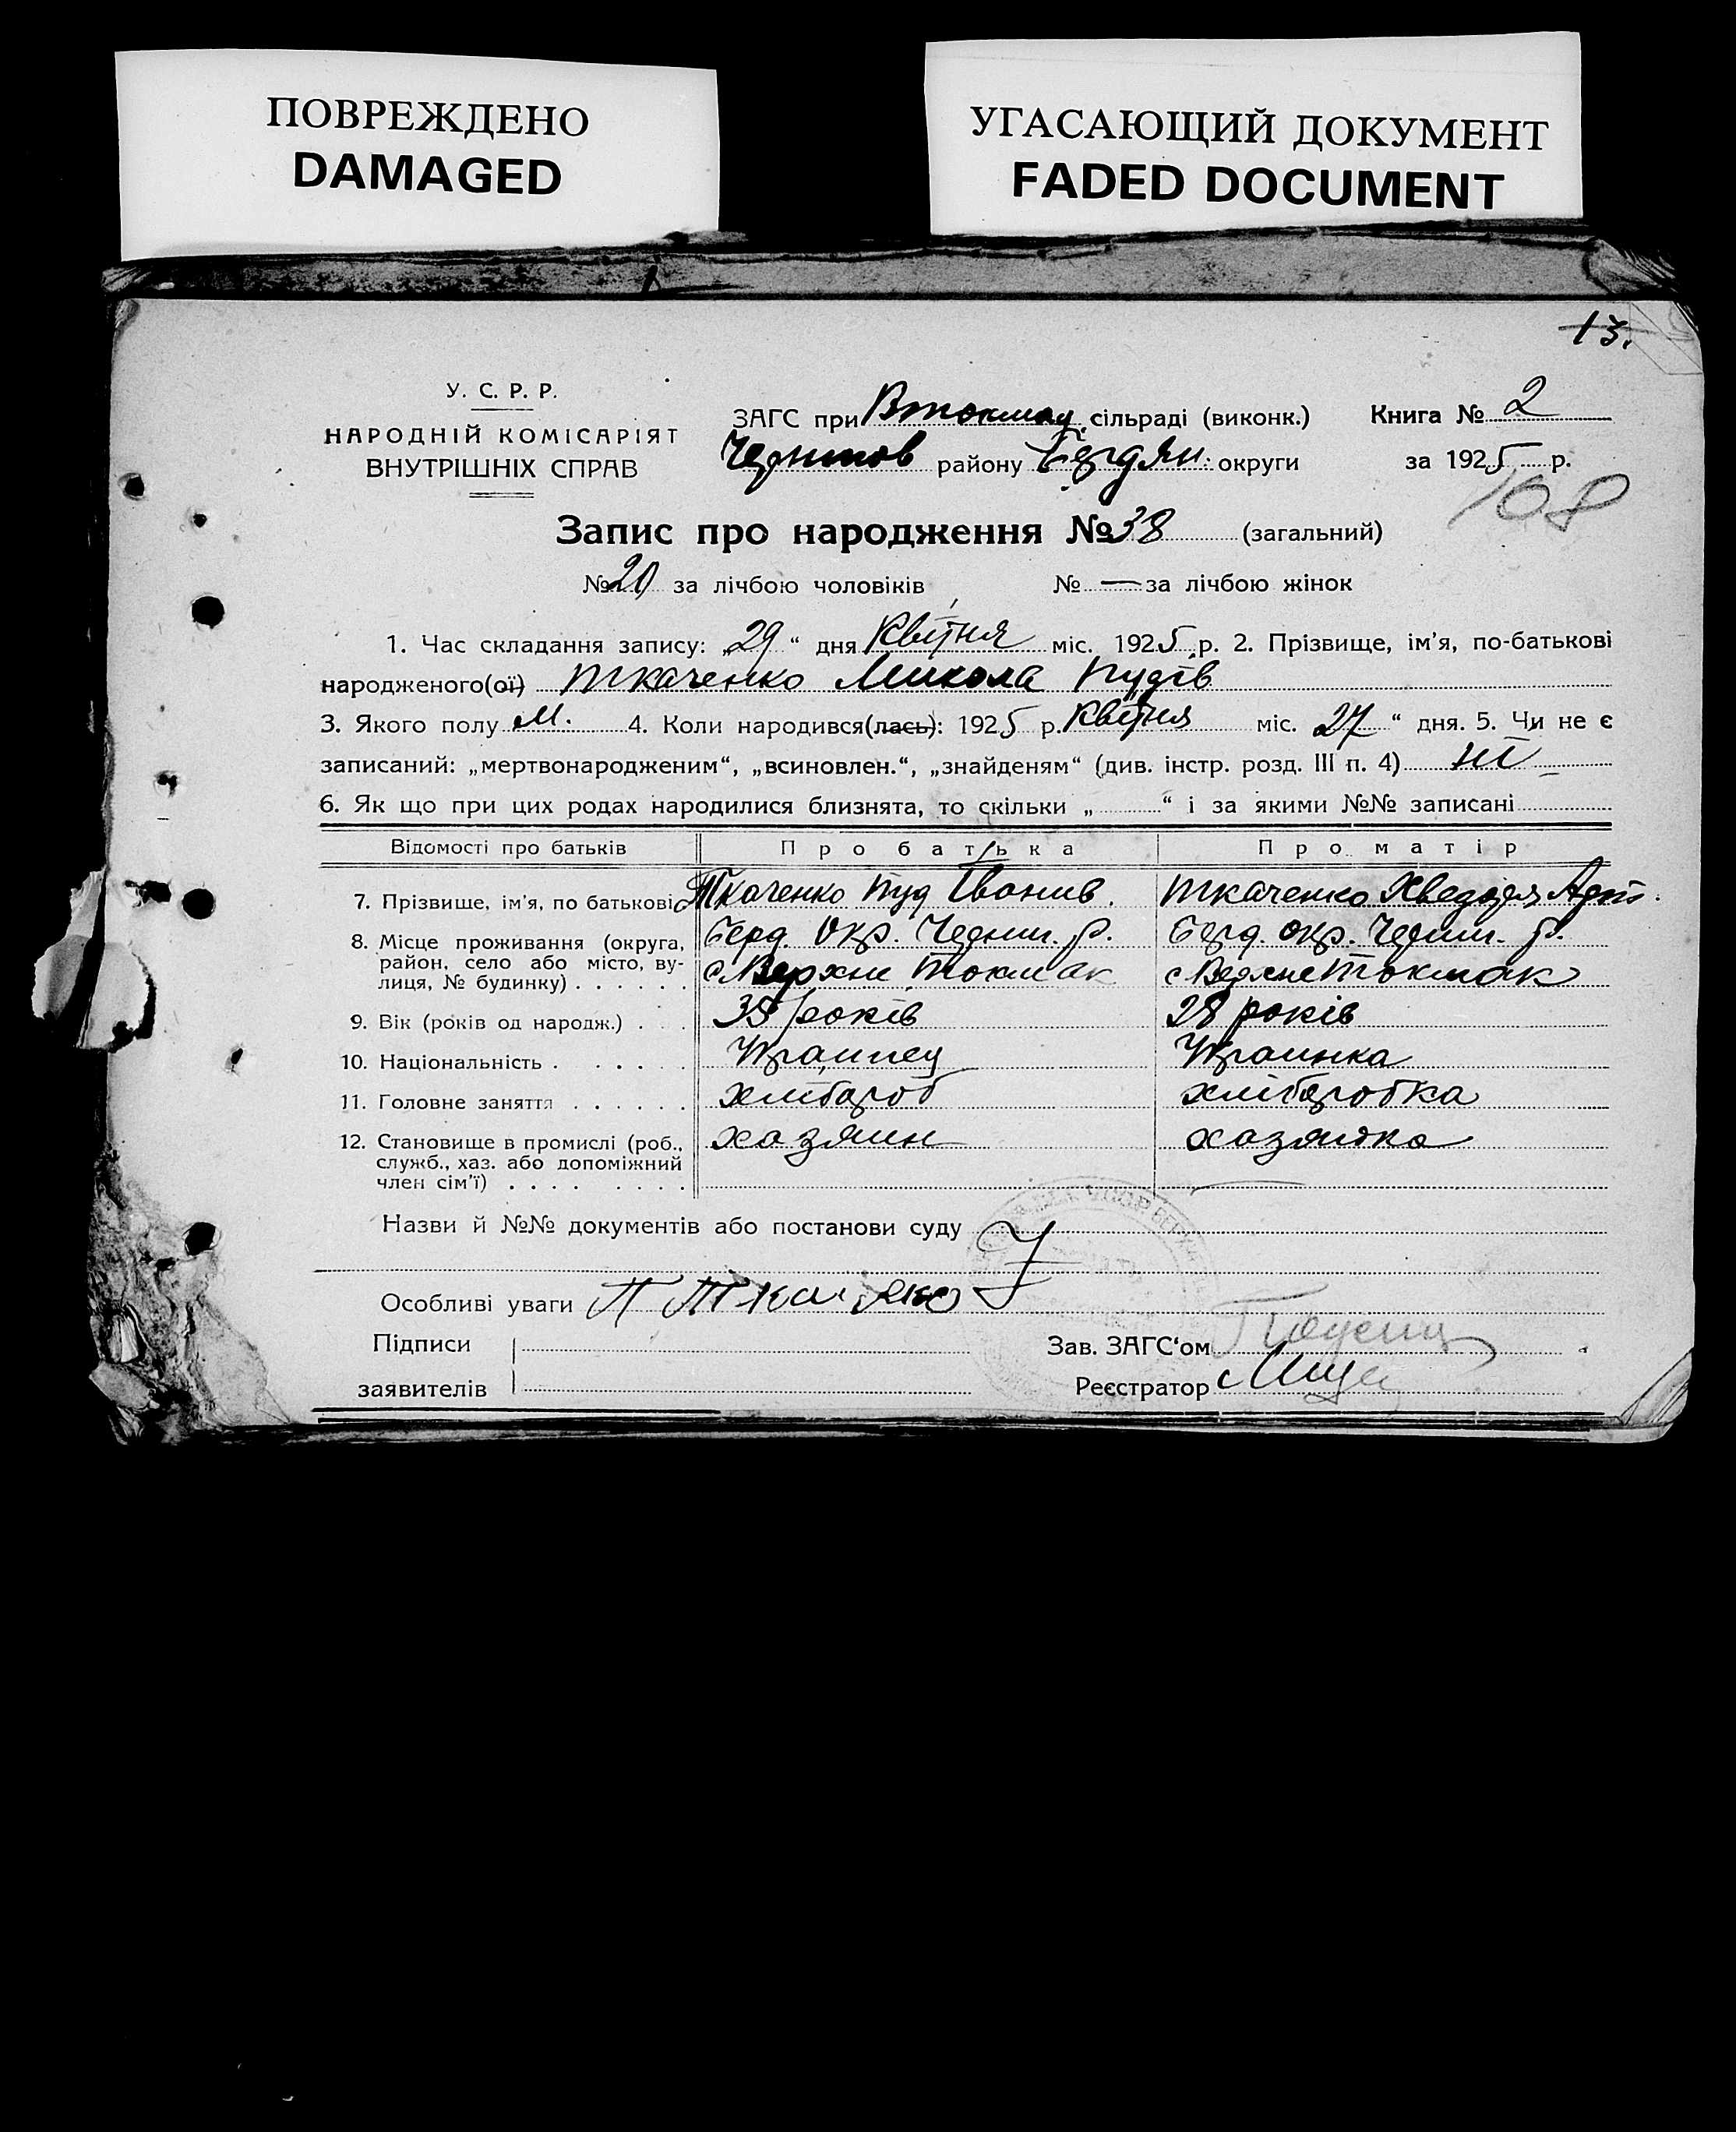 ПОВРЕЖДЕНО
DAMAGED
УГАСАЮЩИЙ ДОКУМЕНТ
FADED DOCUMENT
13.
У. С. Р. Р.
НАРОДНІЙ КОМІСАРІЯТ
ВНУТРІШНІХ СПРАВ
ЗАГС при Втокмац. сільраді (виконк.) Книга № 2
району Бердян. округи за 1925 р.
108
Запис про народження № 38 (загальний)
№ 20 за лічбою чоловіків № — за лічбою жінок
1. Час складання запису: „29“ дня Квітня міс. 1925 р. 2. Прізвище, ім'я, по-батькові
народженого(ої) Ткаченко Микола Пудів
3. Якого полу М. 4. Коли народився(лась): 1925 р. Квітня міс. 27 “ дня. 5. Чи не є
записаний: „мертвонародженим“, „всиновлен.“, „знайденям“ (див. інстр. розд. III п. 4) ні
6. Як що при цих родах народилися близнята, то скільки „ “ і за якими №№ записані
Відомості про батьків Про батька Про матір
7. Прізвище, ім'я, по батькові Ткаченко Пуд Іванив. Ткаченко Хведора
8. Місце проживання (округа, район, село або місто, вулиця, № будинку) Берд. Окр. Черниг. р. Берд. окр. Черниг. р.
с Верхни Токмак с Верхне Токмак
9. Вік (років од народж.) 35 років 28 років
10. Національність Украинец Украинка
11. Головне заняття хлібороб хліборобка
12. Становище в промислі (роб., служб., хаз. або допоміжний член сім'ї) хазяин хазяйка
Назви й №№ документів або постанови суду
Особливі уваги П Ткаченко
Підписи Зав. ЗАГС'ом
заявителів Реєстратор